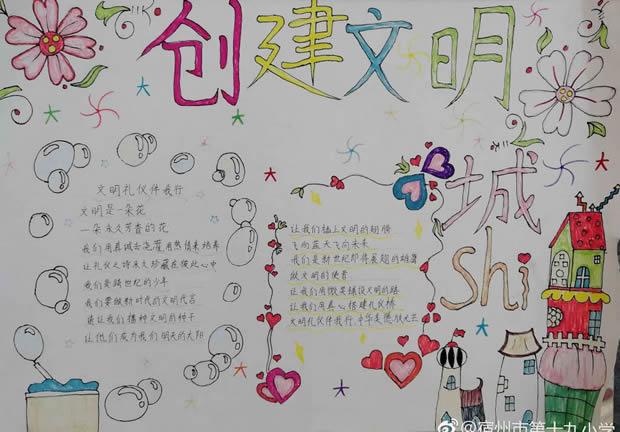 创建文明
城
shi
文明礼仪伴我行
文明是一朵花
一朵永久芳香的花
我们用真诚去浇灌用热情来培养
让礼仪之诗永久珍藏在彼此心中
我们是跨世纪的少年
我们要做新时代的文明代言
快让我们播种文明的种子
让他们成为我们明天的太阳
让我们插上文明的翅膀
飞向蓝天飞向未来
我们是新世纪即将展翅的雄鹰
做文明的使者
让我们用微笑铺设文明的路
让我们用真心搭建礼仪桥
文明礼仪伴我行,中华美德
@宿州市第十九小学